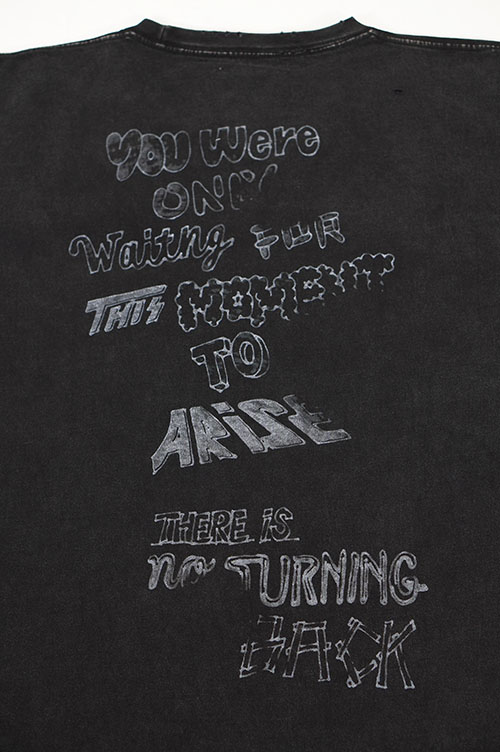 YOU Were
ONLY
Waitng FOR
THIS MOMENT
TO
ARiSE
THERE iS
no TURNING
BACK